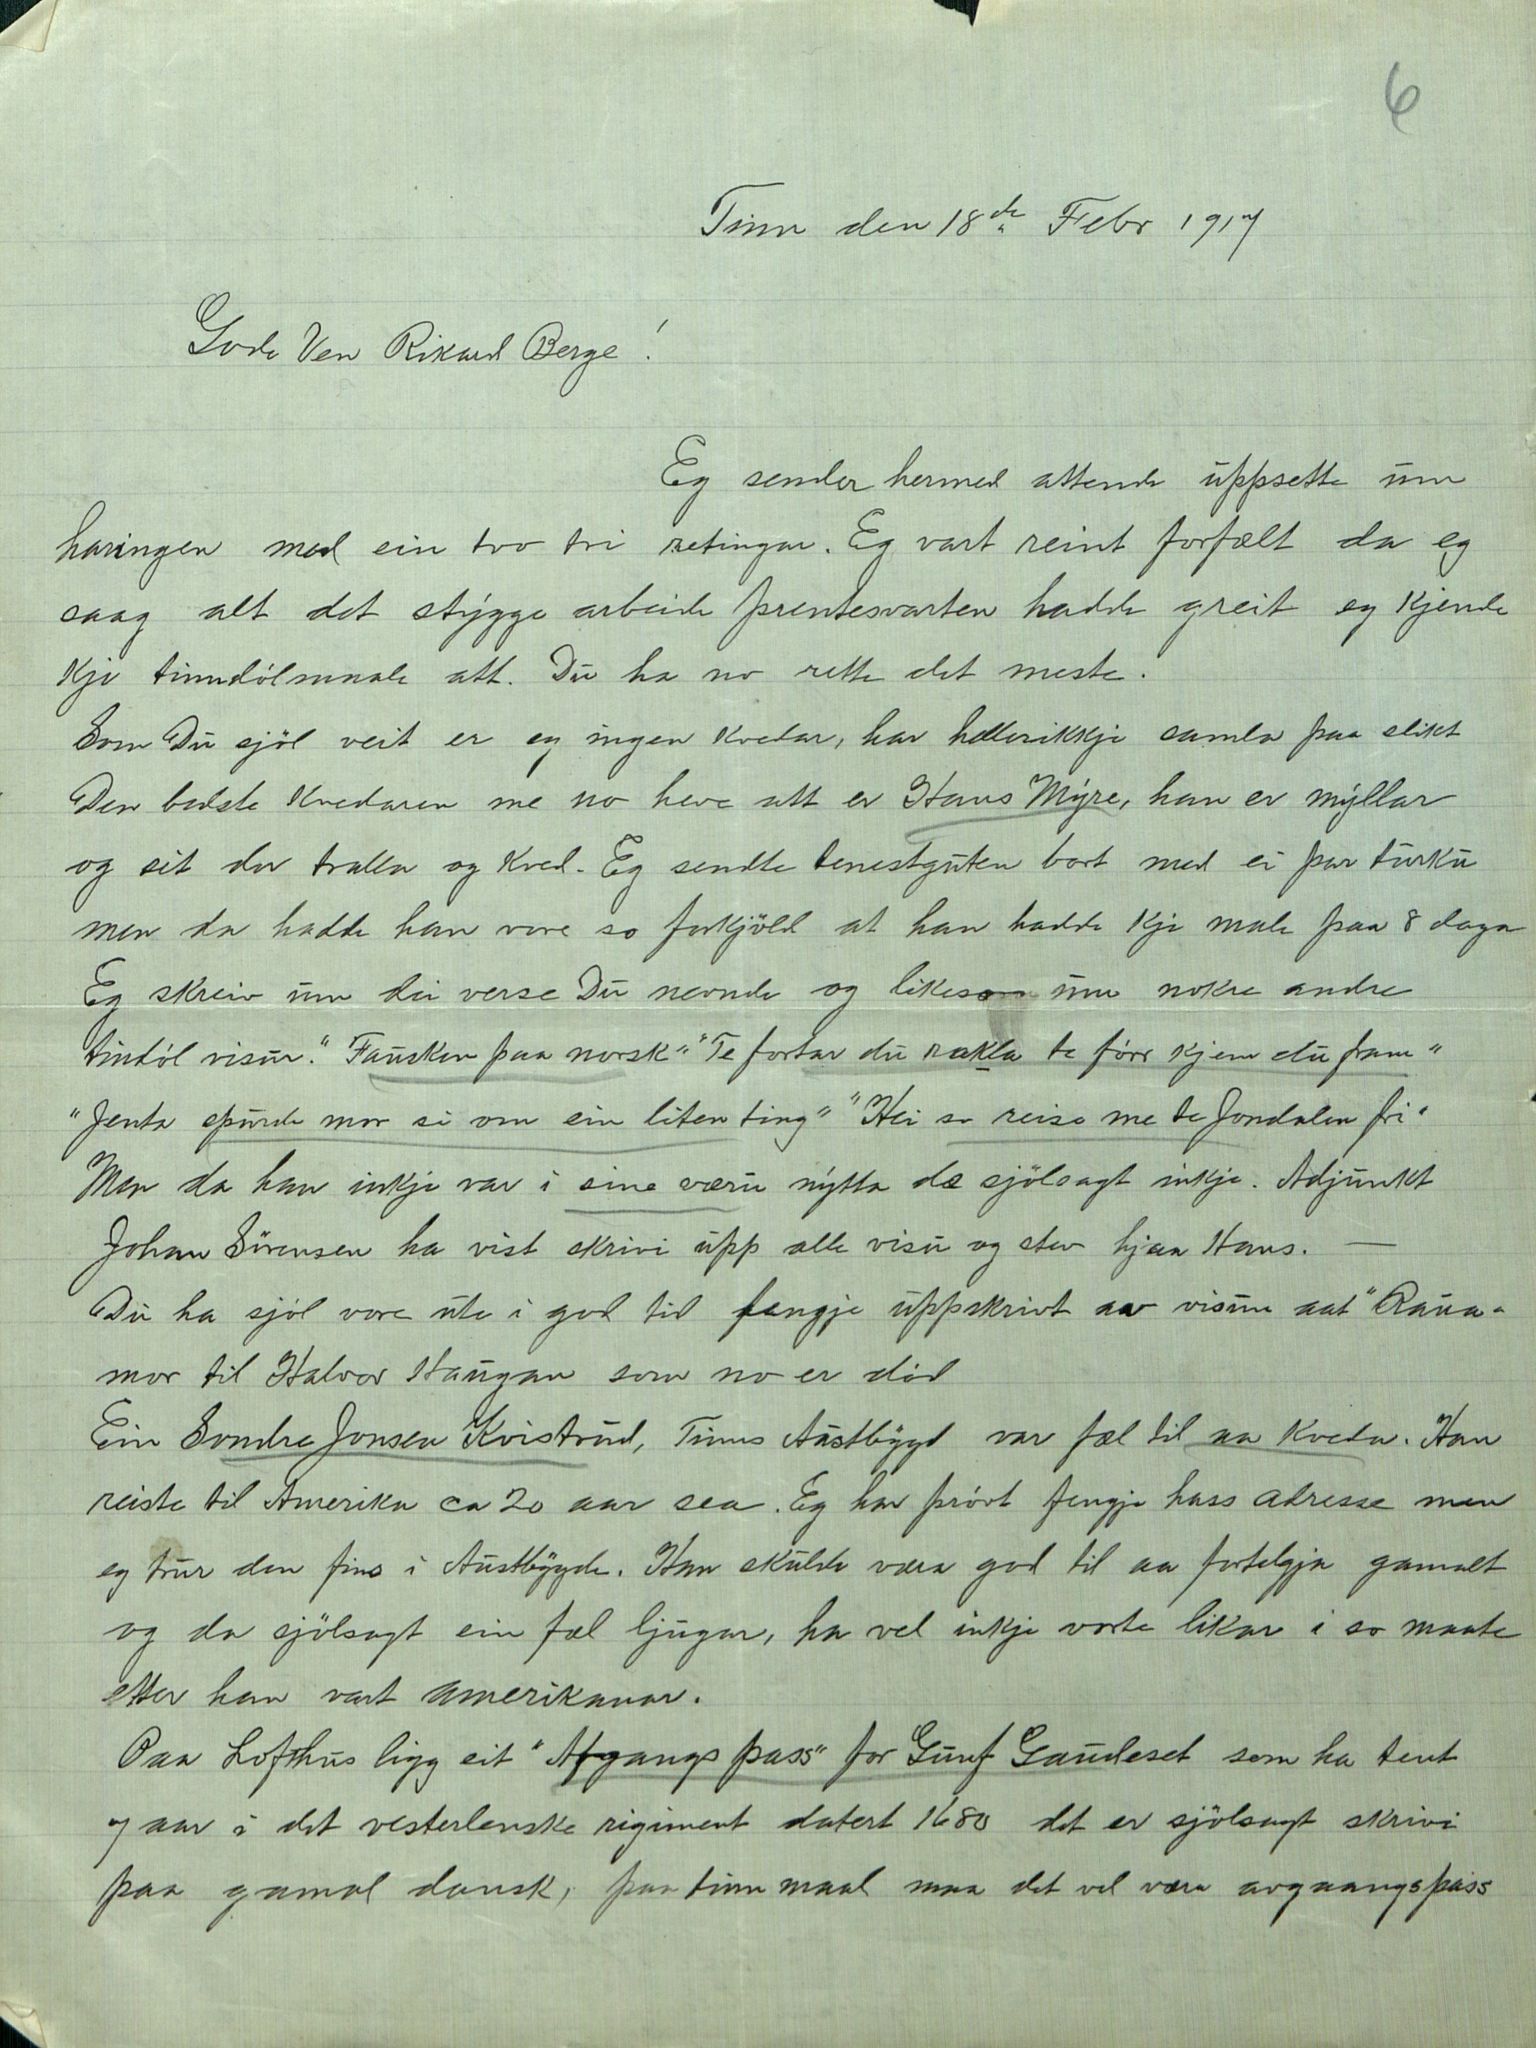 6
Tinn den 18de Febr 1917
Gode Ven Rikard Berge!
Eg sender hermed attende uppsette um
haringen med ein tvo tri retingar. Eg vart reint forfælt da eg
saag alt det stygge arbeide prentesvarten hadde greit eg kjende
kje tinndølmaale att. Du ha no rette det meste.
Som Du sjøl veit er eg ingen kvedar, har hellerikkje samla paa slikt
Den bedste kvedaren me no heve att er Hans Myre, han er myllar
og sit der tralla og kved. Eg sendte tenestguten bort med ei par turku
men da hadde han vore so forkjøld at han hadde kje male paa 8 daga
Eg skreiv um dei verse Du nevnde og likeso um nokre andre
tindøl visur. "Fausken paa norsk" "Te fortar du rækla te förr kjem du fram"
"Jenta spurde mor si om ein liten ting" "Hei so reise me te Jondalen fri"
Men da han inkje var i sine væru nytta de sjølsagt inkje. Adjunkt
Johan Sørensen ha vist skrivi upp alle visu og stev hjaa Hans. —
Du ha sjøl vore ute i god tid fengje uppskrivt av visune aat "Raua-
mor til Halvor Haugan som no er død
Ein Sondre Jonsen Kvistrud, Tinns Austbygd var fæl til aa kveda. Han
reiste til Amerika ca 20 aar sea. Eg har prøvt fengje hass adresse men
eg trur den fins i Austbygde. Han skulde være god til aa fortelgja gamalt
og da sjølsagt ein fæl ljugar, ha vel inkje vorte likar i so maate
etter han vart amerikanar.
Paa Lofthus ligg eit "Afgangs pass" for Gunf Gaudeset som ha tent
7 aar i det vesterlenske rigiment datert 1680 det er sjølsagt skrivi
paa gamal dansk, paa tinnmaal maa det vel være avgaangspass